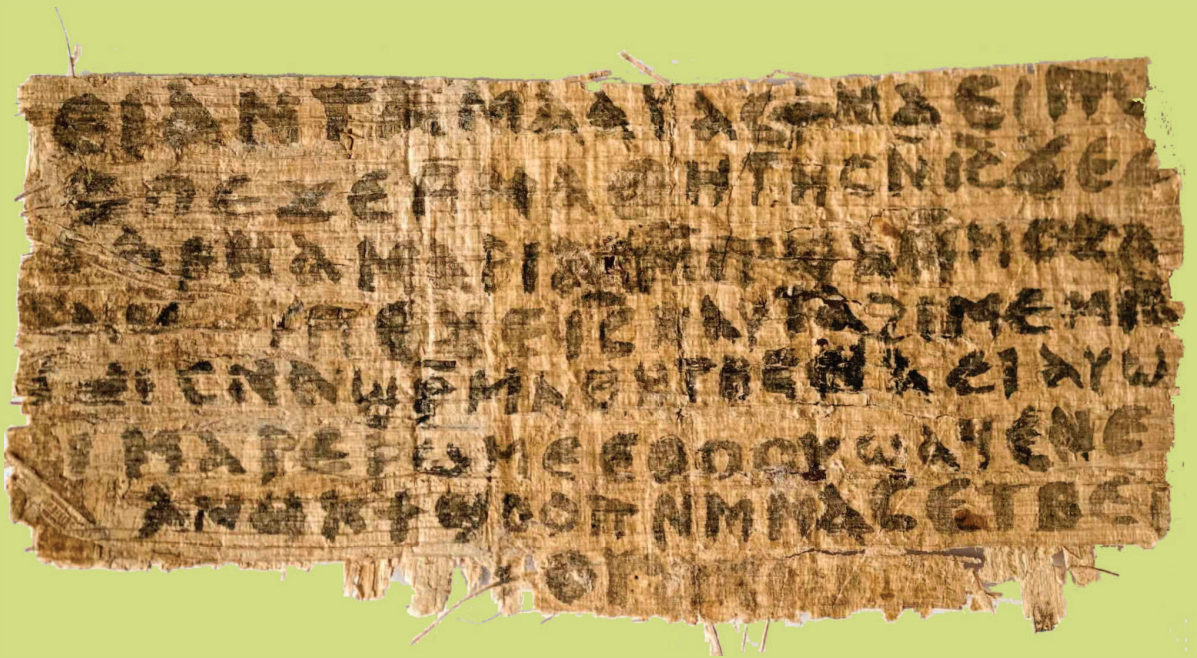 ⲉⲓ ⲁⲛ ⲧⲁⲙⲁⲁⲩ ⲁⲥϯ ⲛⲁⲉⲓ ⲡ
ⲡⲉϫⲉ ⲙⲙⲁⲑⲏⲧⲏⲥ ⲛⲓ̅ⲥ̅ ϫⲉ ⲥ
ⲁⲣⲛⲁ ⲙⲁⲣⲓⲁⲙ ⲙⲡϣⲁ ⲙⲙⲟⲥ ⲁ
ⲡⲉϫⲉ ⲓ̅ⲥ̅ ⲛⲁⲩ ⲧⲁϩⲓⲙⲉ ⲙⲛ
ⲥⲛⲁϣⲣ̅ⲙⲁⲑⲏⲧⲏⲥ ⲛⲁⲉⲓ ⲁⲩⲱ
ⲓ ⲙⲁⲣⲉⲣⲱⲙⲉ ⲉⲑⲟⲟⲩ ϣⲁϥⲉ ⲛⲉ
ⲁⲛⲟⲕ ϯϣⲟⲟⲡ ⲛⲙⲙⲁⲥ ⲉⲧⲃⲉ ⲡ